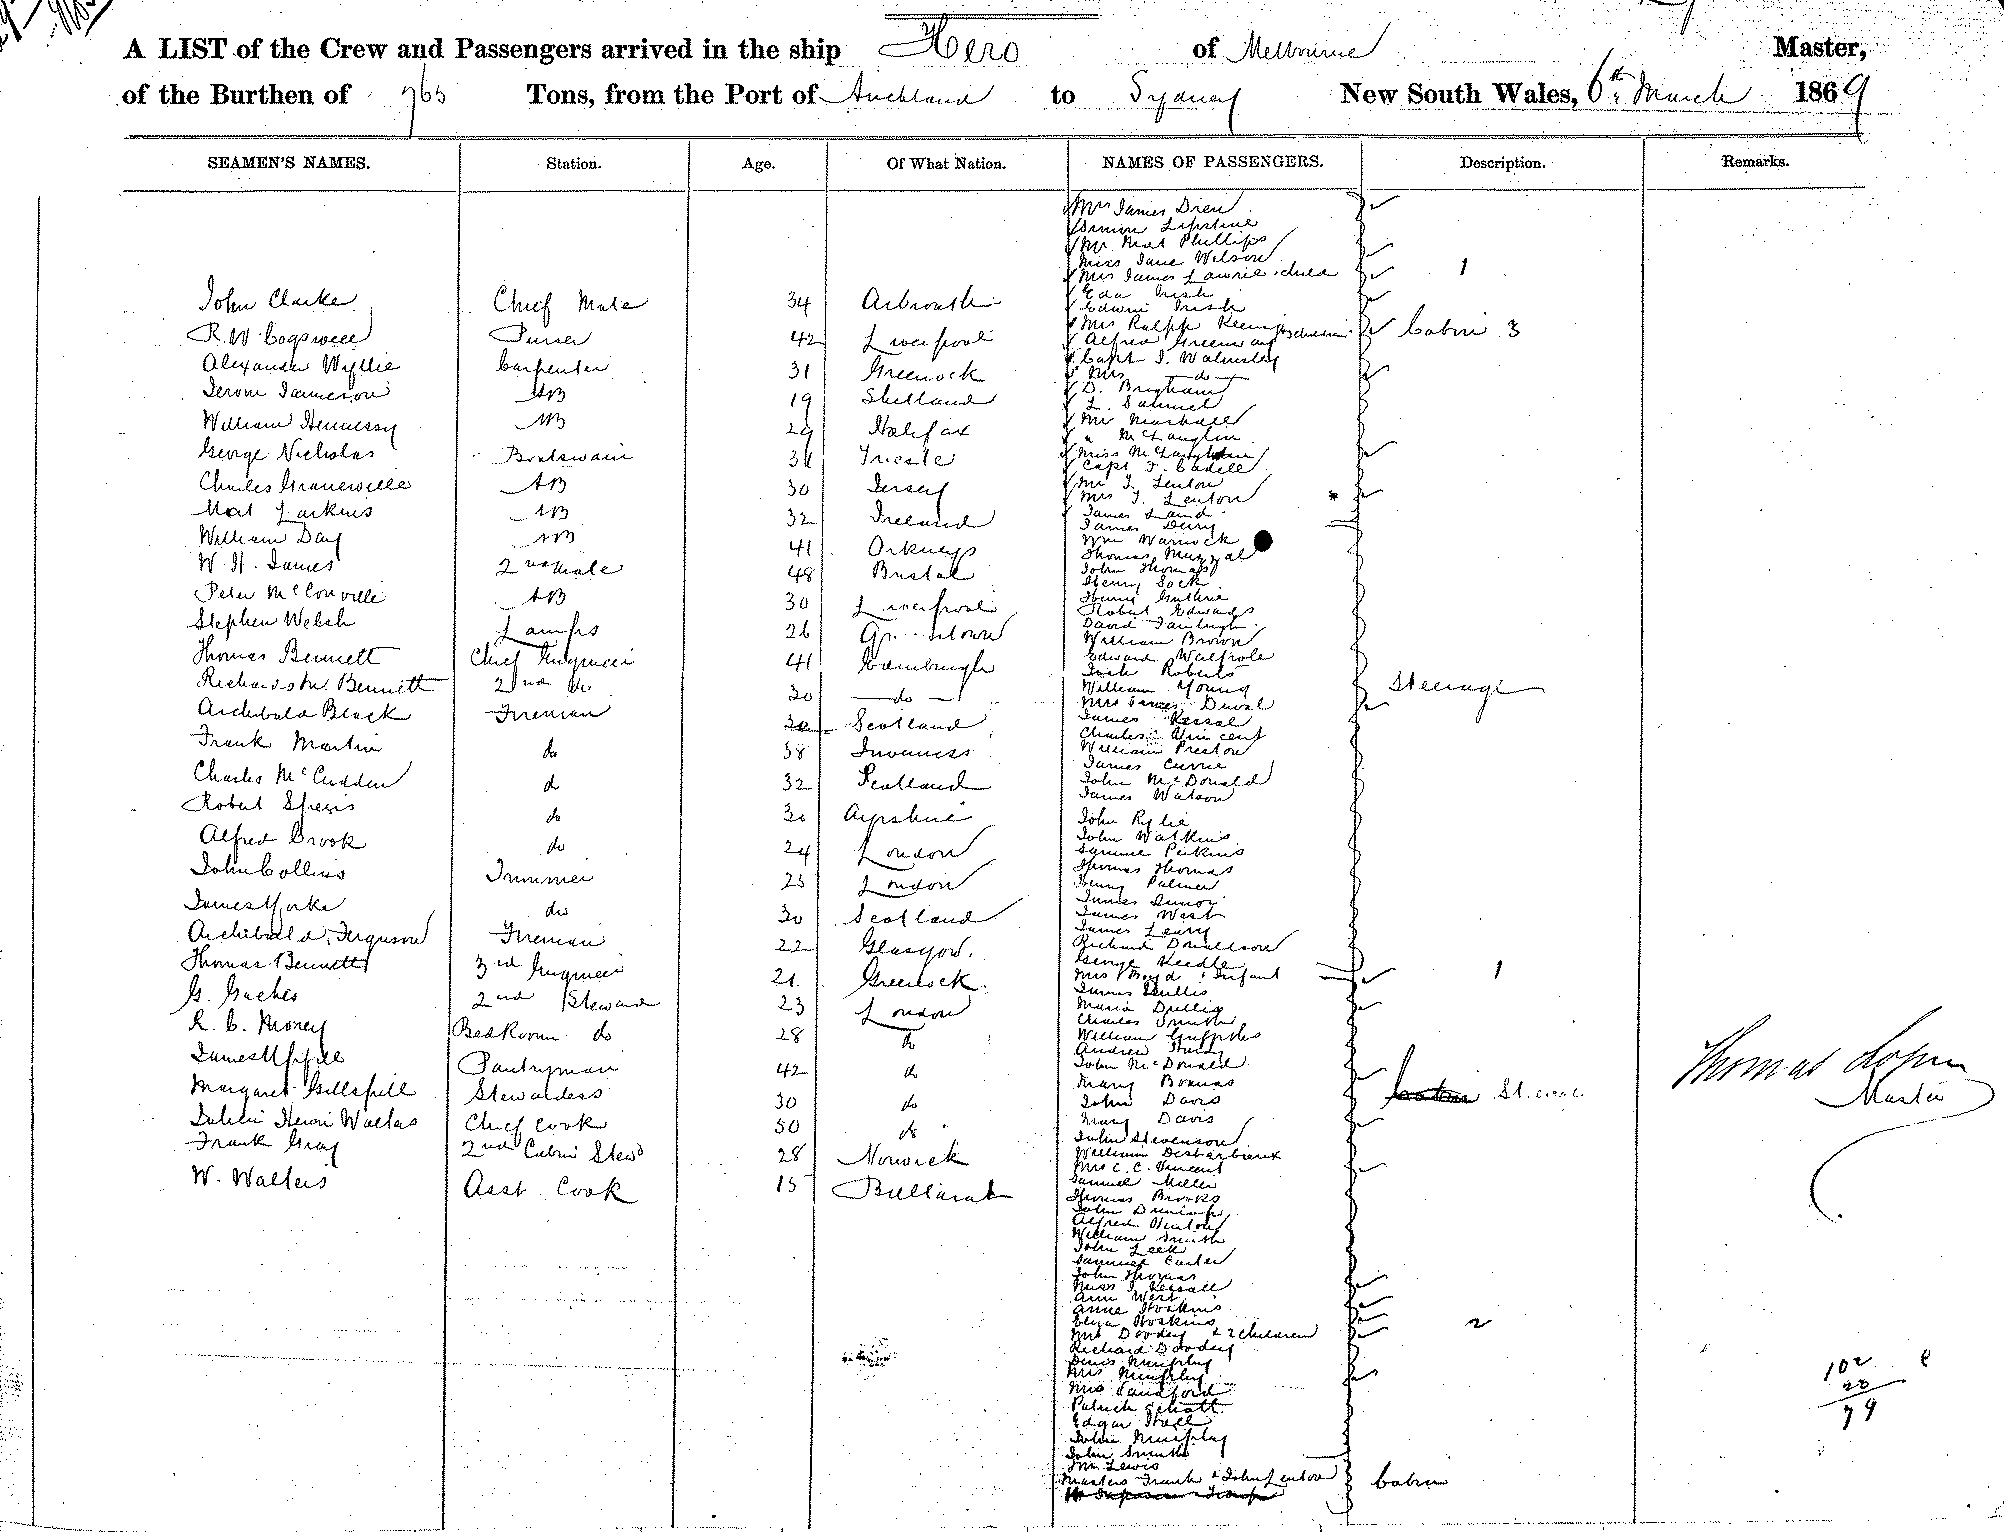 A LIST of the Crew and Passengers arrived in the ship Hero of Melbourne Master,
of the Burthen of 765 Tons, from the Port of Auckland to Sydney New South Wales, 6th March 1869
SEAMEN'S NAMES. Station. Age. Of What Nation. NAMES OF PASSENGERS. Description. Remarks.
John Clarke Chief Mate 34 Arbroath
R. W. Cogswell Purser 42 Liverpool
Alexander Wyllie Carpenter 31 Greenock
Jerom Jameson AB 19 Shetland
William Hennessy AB 29 Halifax
George Nicholas Boatswain Trieste
Charles Granerville AB 30 Jersey
Mat Larkins AB 32 Ireland
William Day AB 41 Orkneys
W. H. James 2nd Mate 48 Bristol
Peter McConville AB 30 Liverpool
Stephen Welsh Lamps 26
Thomas Bennett Chief Engineer 41 Edinburgh
Richards M. Bennett 2nd do 30 do
Archibald Black Fireman 30 Scotland
Frank Martin do 38 Inverness
Charles McCudden do 32 Scotland
Robert do 30 Ayrshire
Alfred Brook do 24 London
John Collins Trimmer 25 London
James Yorke do 30 Scotland
Archibald Ferguson Fireman 22 Glasgow.
Thomas Bennett 3rd Engineer 21 Greenock.
G. Gaches 2nd Steward 23 London
R. C. Money Bedroom do 28 do
James Pantryman 42 do
Margaret Gillspill Stewardess 30 do
Henri Walter Chief Cook 50 do
Frank Gray 2nd Cabin Stewd 28 Norwick
W. Walters Asst Cook 15 Ballarat
Mrs James Drew
Simon Lipstine
Mr Mat Phillips
Miss Jane Wilson
Mrs James Lawrie & child 1
Eda Irish
Edwin Irish
Mrs Ralph Keening 3 children Cabin 3
Alfred Greenway
Capt J. Walmsley
Mrs do
D. Brigham
L. Samuel
Mr Marshall
" McLauglin
Miss McLaughlin
Capt F. Cadell
Mr J. Lenton
Mrs J. Lenton
James Laird
James Deny
Wm Warnock
Thomas Muzzal
John Thomas
Henry Sock
Henry Guthrie
Robert Edwards
David
William Brown
Edward Walpole
Dick Roberts
William Young Steerage
Mrs James Duval
James Kessal
Charles Vincent
William Preston
James Currie
John McDonald
James Watson
John Rylie
John Watkins
Samuel Perkins
Thomas Thomas
Henry Palmer
James Junor
James West
James Leary
Richard Donaldson
George Needle
Mrs Boyd & Infant 1
James
Maria
Charles Smith
William Griffiths
Andrew
John McDonald
Mary Bowmas
John Davis
Mary Davis
John Stevenson
William Desbarbieux
Mrs C. C. Vincent
Samuel Miller
Thomas Brooks
John Dunlop
Alfred Newton
William Smith
John Leek
Samuel Carter
John Thomas
Miss J. Kessall
Ann West
Anne Hoskins
Eliza Hoskins
Mrs Doodey & 2 children 2
Richard Doodey
Denis Murphy
Mrs Murphy
Mrs Sandford
Patrick
Edgar Hall
John Murphy
John Smith
Mr Lewis
Masters Frank & John Lenton Cabin
Thomas Logan
Master
102
79